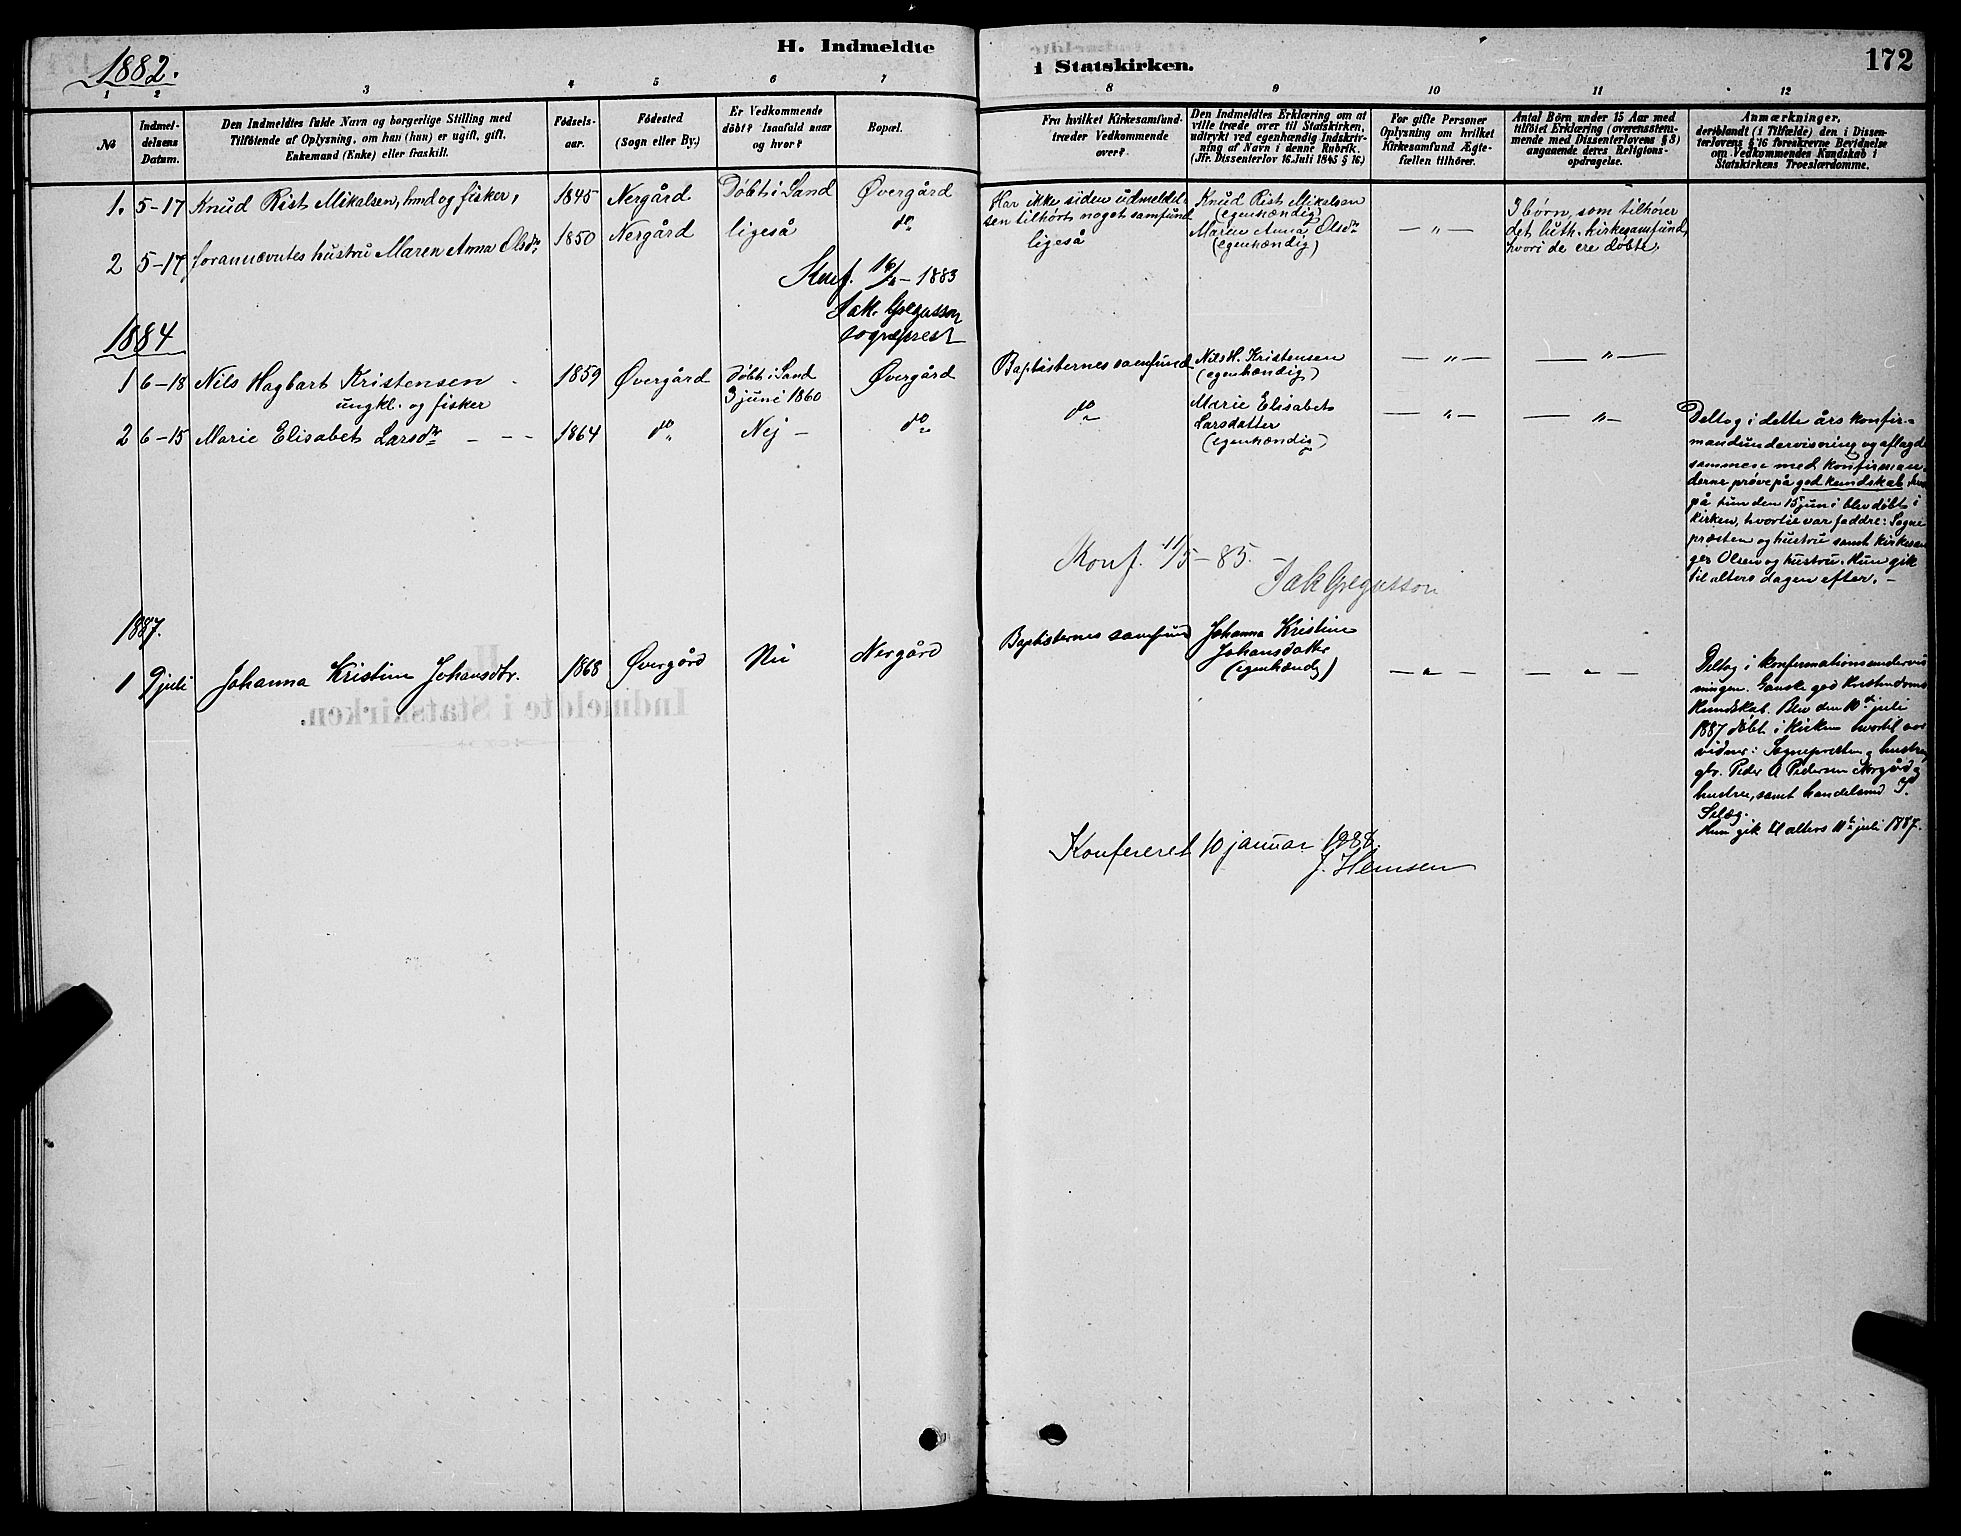 H. Indmeldte
i Statskirken.
172
1882.
1 2 3 4 5 6 7 8 9 10 11 12
№
Indmel-
delsens
Datum.
Den Indmeldtes fulde Navn og borgerlige Stilling med
Tilföiende af Oplysning, om han (hun) er ugift, gift,
Enkemand (Enke) eller fraskilt.
Födsels-
aar.
Födested
(Sogn eller By.)
Er Vedkommende
döbt? Isaafald naar
og hvor?
Bopæl.
Fra hvilket Kirkesamfund
træder Vedkommende
over?
Den Indmeldtes Erklæring om at
ville træde over til Statskirken,
udtrykt ved egenhændig Indskriv-
ning af Navn i denne Rubrik.
(Jfr. Dissenterlov 16. Juli 1845 § 16.)
For gifte Personer
Oplysning om hvilket
Kirkesamfund Ægte-
fællen tilhörer.
Antal Börn under 15 Aar med
tilföiet Erklæring (overensstem-
mende med Dissenterlovens § 8)
angaaende deres Religions-
opdragelse.
Anmærkninger,
deriblandt (i Tilfælde) den i Dissen-
terlovens § 16 foreskrevne Bevidnelse
om Vedkommendes Kundskab i
Statskirkens Troeslærdomme.
1. 5-17 Knud Rist Mikalsen, hmd og fisker, 1845 Nergård Døbt i Sand Øvergård
Har ikke siden udmeldel-
sen tilhørt noget samfund
Knud Rist Mikalsen
(egenhændig)
børn, som tilhører
det luth. kirkesamfund,
hvori de ere døbte,
2 5-17 forannævntes hustru Maren Anna Olsdtr 1850 Nergård ligeså do
ligeså
Maren Anna Olsdtr
(egenhændig)
— " —
Konf. - 1883
Jak. Gregusson
sogneprest
1884
1 6-18 Nils Hagbart Kristensen
ungkl. og fisker
1859 Øvergård
Døbt i Sand
3 juni 1860
Øvergård
Baptisternes samfund
Nils H. Kristensen
(egenhændig)
— " — — " —
2 6-15 Marie Elisabet Larsdtr - - - 1864 do Nej - do
do
Marie Elisabet
Larsdatter
(egenhændig)
— " — — " —
Deltog i dette års konfir-
mandundervisning og aflagde
sammen med konfirman-
derne prøve på god kundskab
på hun den 15 juni blev døbt i
kirken, hvortil var faddre: Sogne
præsten og hustru samt kirkesan
ger Olsen og hustru. Hun gik
til alters dagen efter. -
Konf. 11/5 - 85. -
Jak Gregusson
1887.
1 9 juli Johanna Kristine Johansdtr. 1868 Øvergård Nei Nergård
Baptisternes samfund
Johanna Kristine
Johansdatter
(egenhændig)
— " — — " —
Deltog i konfirmationsundervis
ningen. Ganske god kristendoms
kundskab. Blev den 10d juli
1887 døbt i kirken hvortil var
vidner: Sognepresten og hustru,
gbr. Peder A Pedersen Nergård og
hustru, samt handelsmd
Hun gik til alters 11te juli 1887.
Konfereret 10 januar 1888.
J. Hemsen
H.
Indmeldte i Statskirken.